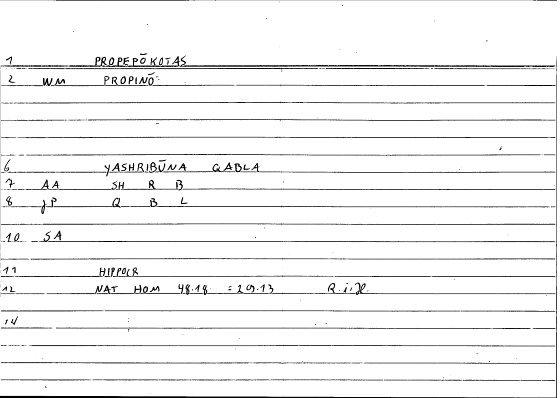 1 PROPEPŌKOTAS
2 WM PROPINŌ
6 YASHRIBŪNA QABLA
7 AA SH R B
8 JP Q B L
10 SA
11 HIPPOCR
12 NAT HOM 48.18 = 29.13
14